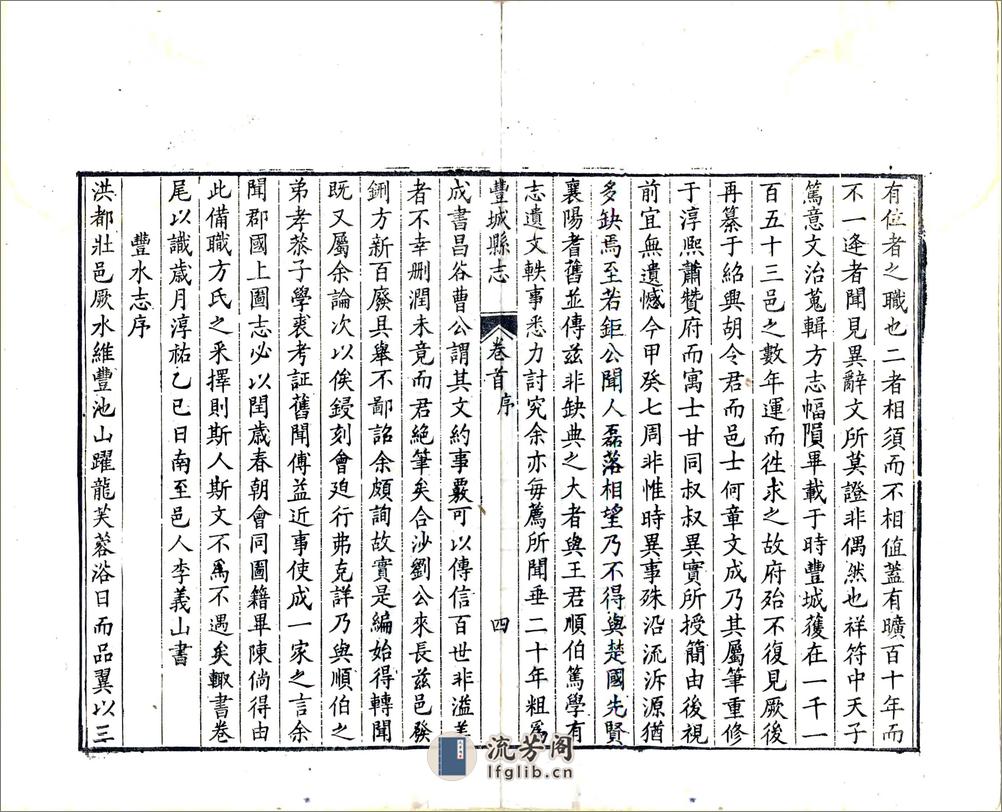 有位者之職也二者相須而不相值蓋有曠百十年而
不一逢者聞見異辭文所莫證非偶然也祥符中天子
篤意文治蒐輯方志幅隕畢載于時豐城蓰在一千一
百五十三邑之數年運而徃求之故府殆不復見厥後
再纂于紹興胡令君而邑士何章文成乃其屬筆重修
于淳熙蕭贊府而寓士甘同叔叔異實所授簡由後視
前宜無遺憾今甲癸七周非惟時異事殊沿流泝源猶
多缺焉至若鉅公聞人磊落相望乃不得與楚國先賢
襄陽耆舊並傳茲非缺典之大者與王君順伯篤學有
志遺文軼事悉力討究余亦每薦所聞垂二十年粗爲
豐城縣志
卷首
序
四
成書昌谷曹公謂其文約事覈可以傳信百世非溢美
者不幸刪潤未竟而君絕筆矣合沙劉公來長茲邑發
鉶方新百廢具舉不鄙詔余頗詢故實是編始得轉聞
既又屬余論次以俟鋟刻會廹行弗克詳乃與順伯之
弟孝恭子學裘考証舊聞傅益近事使成一家之言余
聞郡國上圖志必以閏歲春朝會同圖籍畢陳倘得由
此備職方氏之采擇則斯人斯文不爲不遇矣輙書卷
尾以識歲月淳祐乙巳日南至邑人李義山書
豐水志序
洪都壯邑厥水維豐池山躍龍芙蓉浴日而品翼以三
流芳阁
lfglib.cn